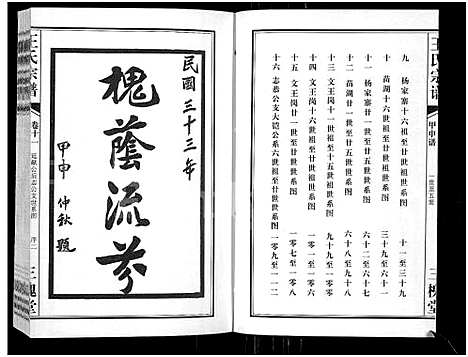 王氏宗谱
甲申谱
一世至五世
三槐堂
九 杨家寨十六世祖至廿世世系图 十一至三十九
十 杨家寨廿一世至廿世世系图 四十至六十二
十一 苗湖十六世祖至廿世祖世系图 六十二至六十七
十二 苗湖廿一世至廿世世系图 六十八至九十八
十三 文王岗十六世祖世系图 九十九至一〇五
十四 文王岗十六世祖世系图 一〇五至一〇六
十五 文王岗廿一世至廿世世系图 一〇七至一〇八
十六 志恭公支大铠公系六世祖至廿世世系图 一〇九至一二一
民國三十三年
槐蔭流芬
甲申仲秋題
王氏宗谱
卷十一
世系图
序二
三槐堂